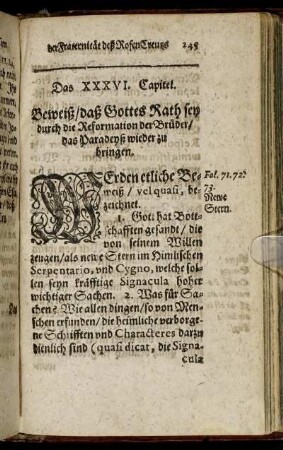 der Fraternität deß Rosen Creutzs 245
Das XXXVI. Capitel.
Beweiß/ daß Gottes Rath sey
durch die Reformation der Brüder/
das Paradeyß wieder zu
bringen.
WErden etliche Be-
weiß / vel quasi, be-
zeichnet.
1. Gott hat Bott-
schafften gesandt / die
von seinem Willen
zeugen/ als newe Stern im Himlischen
Serpentario, vnd Cygno, welche sol-
len seyn kräfftige Signacula hoher
wichtiger Sachen. 2. Was für Sa-
chen? Wie allen dingen/ so von Men-
schen erfunden/ die heimliche verborge-
ne Schrifften vnd Characteres darzu
dienlich sind (quasi dicat, die Signa-
cula
Fol. 71. 72.
73.
Newe
Stern.